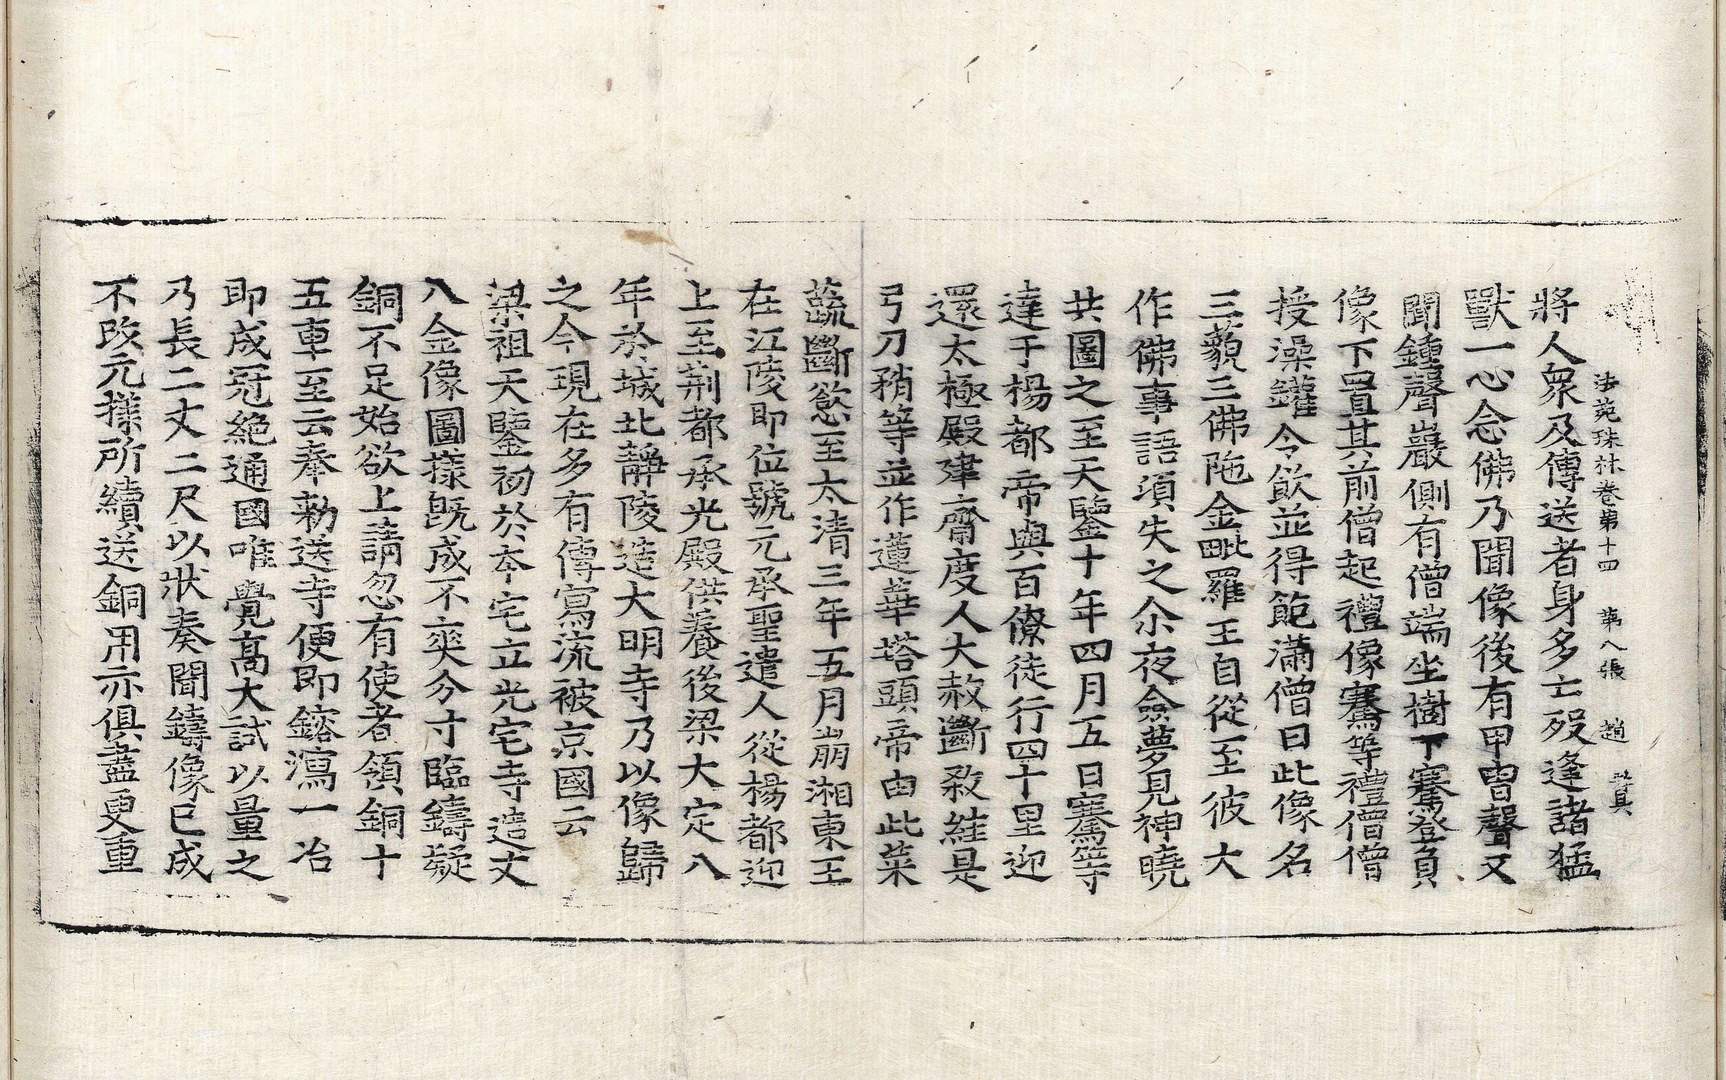 法苑珠林卷第十四 第八張 趙
將人衆及傳送者身多亡歿逢諸猛
獸一心念佛乃聞像後有甲冑聲又
聞鍾聲巖側有僧端坐樹下騫登負
像下置其前僧起禮像騫等禮僧僧
授澡鑵令飲並得飽滿僧曰此像名
三藐三佛陁金毗羅王自從至彼大
作佛事語湏失之尒夜僉夢見神曉
共圖之至天鑒十年四月五日騫等
達于楊都帝與百僚徒行四十里迎
還太極殿建齋度人大赦斷殺絓是
弓刀矟等並作蓮華塔頭帝由此菜
蔬斷慾至太清三年五月崩湘東王
在江陵即位號元承聖遣人從楊都迎
上至荆都承光殿供養後梁大定八
年於城北靜陵造大明寺乃以像歸
之今現在多有傳寫流被京國云
梁祖天鑒初於夲宅立光宅寺造丈
八金像圖樣旣成不爽分寸臨鑄疑
銅不足始欲上請忽有使者領銅十
五車至云奉勑送寺便即鎔瀉一冶
即成冠絶通國唯覺髙大試以量之
乃長二丈二尺以狀奏聞鑄像已成
不改元樣所續送銅用亦俱盡更重